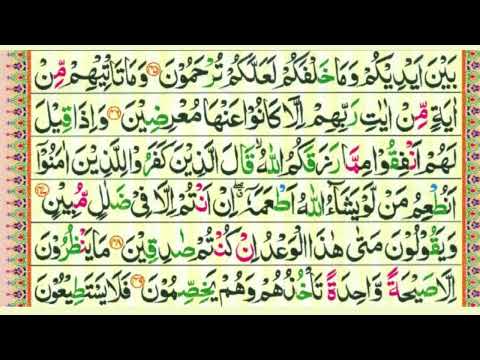 بَيْنَ اَيْدِيْكُمْ وَمَا خَلْفَكُمْ لَعَلَّكُمْ تُرْحَمُوْنَ ﴿۴۵﴾ وَمَا تَاْتِيْهِمْ مِّنْ
اٰيَةٍ مِّنْ اٰيٰتِ رَبِّهِمْ اِلَّا كَانُوْا عَنْهَا مُعْرِضِيْنَ ﴿۴۶﴾ وَاِذَا قِيْلَ
لَهُمْ اَنْفِقُوْا مِمَّا رَزَقَكُمُ اللّٰهُ ۙ قَالَ الَّذِيْنَ كَفَرُوْا لِلَّذِيْنَ اٰمَنُوْٓا
اَنُطْعِمُ مَنْ لَّوْ يَشَآءُ اللّٰهُ اَطْعَمَهٗٓ ۖ اِنْ اَنْتُمْ اِلَّا فِيْ ضَلٰلٍ مُّبِيْنٍ ﴿۴۷﴾
وَيَقُوْلُوْنَ مَتٰى هٰذَا الْوَعْدُ اِنْ كُنْتُمْ صٰدِقِيْنَ ﴿۴۸﴾ مَا يَنْظُرُوْنَ
اِلَّا صَيْحَةً وَّاحِدَةً تَاْخُذُهُمْ وَهُمْ يَخِصِّمُوْنَ ﴿۴۹﴾ فَلَا يَسْتَطِيْعُوْنَ